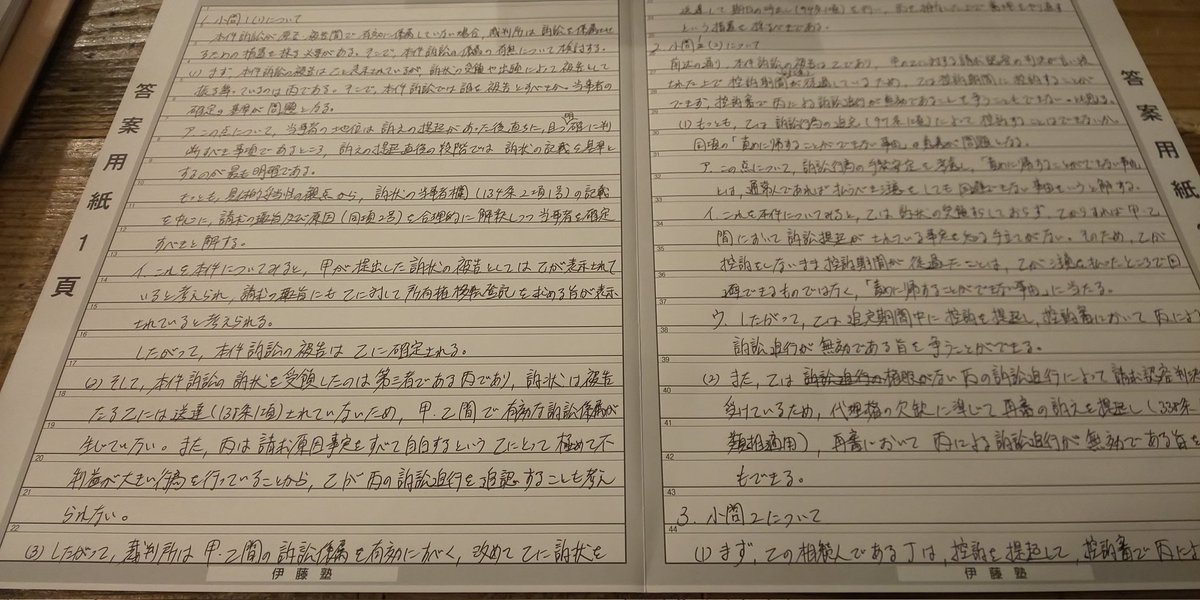 答案用紙 1 頁
1. 小問1(1)について
本件訴訟が甲・乙間で有効に係属していない場合、裁判所は訴訟を係属させ
るための措置を採る必要がある。そこで、本件訴訟の係属の有無について検討する。
(1) まず、本件訴訟の被告は乙と表示されているが、訴状の受領や出頭によって被告として
振る舞っているのは丙である。そこで、本件訴訟では誰を被告とすべきか、当事者の
確定の基準が問題となる。
ア. この点について、当事者の地位は訴えの提起があった後直ちに、且つ明確に判
断すべき事項であるところ、訴えの提起直後の段階では訴状の記載を基準と
するのが最も明確である。
もっとも、具体的妥当性の観点から、訴状の当事者欄(134条2項1号)の記載
を中心に、請求の趣旨及び原因(同項2号)を合理的に解釈しつつ当事者を確定
すべきと解する。
イ. これを本件についてみると、甲が提出した訴状の被告としては乙が表示されて
いると考えられ、請求の趣旨にも乙に対して所有権移転登記を求める旨が表示
されていると考えられる。
したがって、本件訴訟の被告は乙に確定される。
(2) そして、本件訴訟の訴状を受領したのは第三者である丙であり、訴状は被告
たる乙には送達(138条1項)されていないため、甲・乙間で有効な訴訟係属が
生じていない。また、丙は請求原因事実をすべて自白するという乙にとって極めて不
利益が大きい行為を行っていることから、乙が丙の訴訟追行を追認することも考え
られない。
(3) したがって、裁判所は甲・乙間の訴訟係属を有効にすべく、改めて乙に訴状を
伊藤塾
答案用紙
送達して期日の呼出し(94条1項)を行い、
という措置を採るべきである。
2. 小問1(2)について
前述の通り、本件訴訟の被告は乙であり、甲の乙に対する請求認容の判決が言い渡
された上で控訴期間が経過しているため、乙は控訴期間に控訴することが
できず、控訴審で丙による訴訟追行が無効であることを争うこともできないとも思える。
(1) もっとも、乙は訴訟行為の追完(97条1項)によって控訴することはできないか。
同項の「責めに帰することができない事由」の意義が問題となる。
ア. この点について、訴訟行為の手続安定を考慮し、「責めに帰することができない事由」
とは、通常人であれば払うべき注意をしても回避できない事由をいうと解する。
イ. これを本件についてみると、乙は訴状の受領をしておらず、乙からすれば甲・乙
間において訴訟提起がされている事実を知る手立てがない。そのため、乙が
控訴をしないまま控訴期間が経過したことは、乙が注意を払ったところで回
避できるものではなく、「責めに帰することができない事由」に当たる。
ウ. したがって、乙は追完期間中に控訴を提起し、控訴審において丙によ
訴訟追行が無効である旨を争うことができる。
(2) また、乙は権限がない丙の訴訟追行によって請求認容判決
受けているため、代理権の欠缺に準じて再審の訴えを提起し(338条
類推適用)、再審において丙による訴訟追行が無効である旨を
もできる。
3. 小問2について
(1) まず、乙の相続人である丁は、控訴を提起して、控訴審で丙によ
伊藤塾